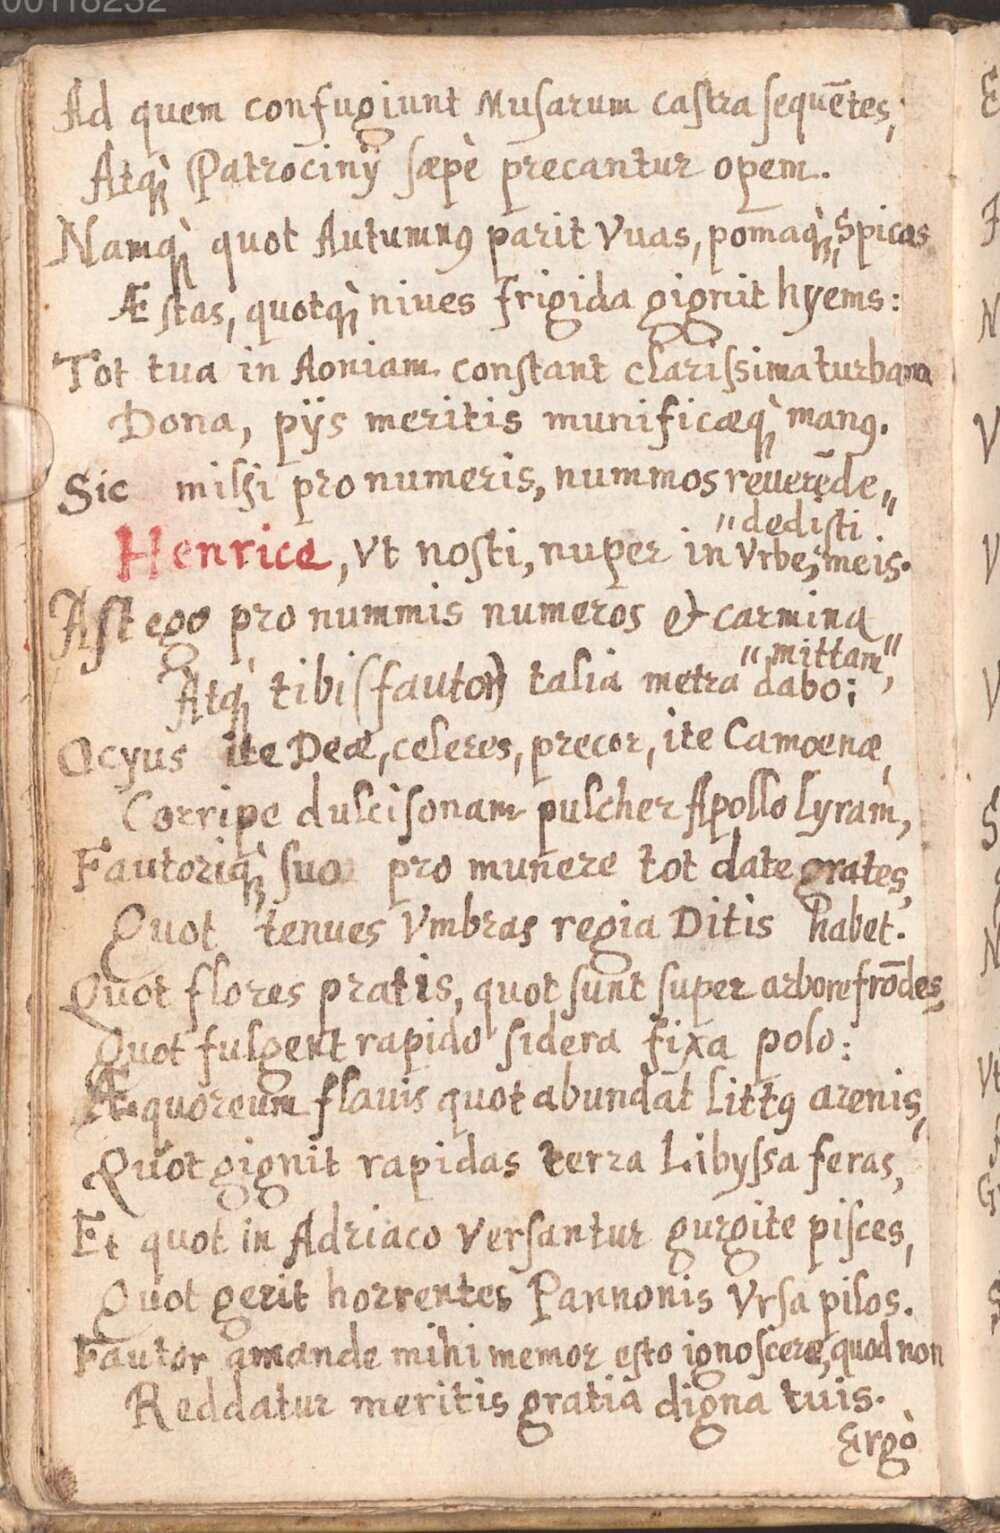 00118252
Ad quem confugiunt Musarum castra sequētes,
Atq̀ꝫ Patrociniÿ sæpè precantur opem.
Namq̀ꝫ quot Autumnꝯ parit Vuas, pomaq̀ꝫ, Spicas
Æstas, quotq̀ꝫ niues frigida gignit hyems:
Tot tua in Aoniam constant clarissima turbam
Dona, pijs meritis munificæq̀ꝫ manꝯ.
Sic mihi pro numeris, nummos reuerēde„
„dedisti
Henrice, Vt nosti, nuper in Vrbe, meis.
Ast ego pro nummis numeros et carmina
„mittam„,
Atq̀ꝫ tibi (fautor) talia metra dabo;
Ocyus ite Deæ, celeres, precor, ite Camoenæ,
Corripe dulcisonam pulcher Apollo Lyram,
Fautoriq̀ꝫ suo pro munere tot date grates,
Quot tenues Vmbras regia Ditis habet.
Quot flores pratis, quot sunt super arbore frōdes,
Quot fulgent rapido sidera fixa polo:
Æquoreum flauis quot abundat Littꝯ arenis,
Quot gignit rapidas terra Libyssa feras,
Et quot in Adriaco Versantur gurgite pisces,
Quot gerit horrentes Pannonis Vrsa pilos.
Fautor amande mihi memor esto ignoscere, quod non
Reddatur meritis gratia digna tuis.
Ergò